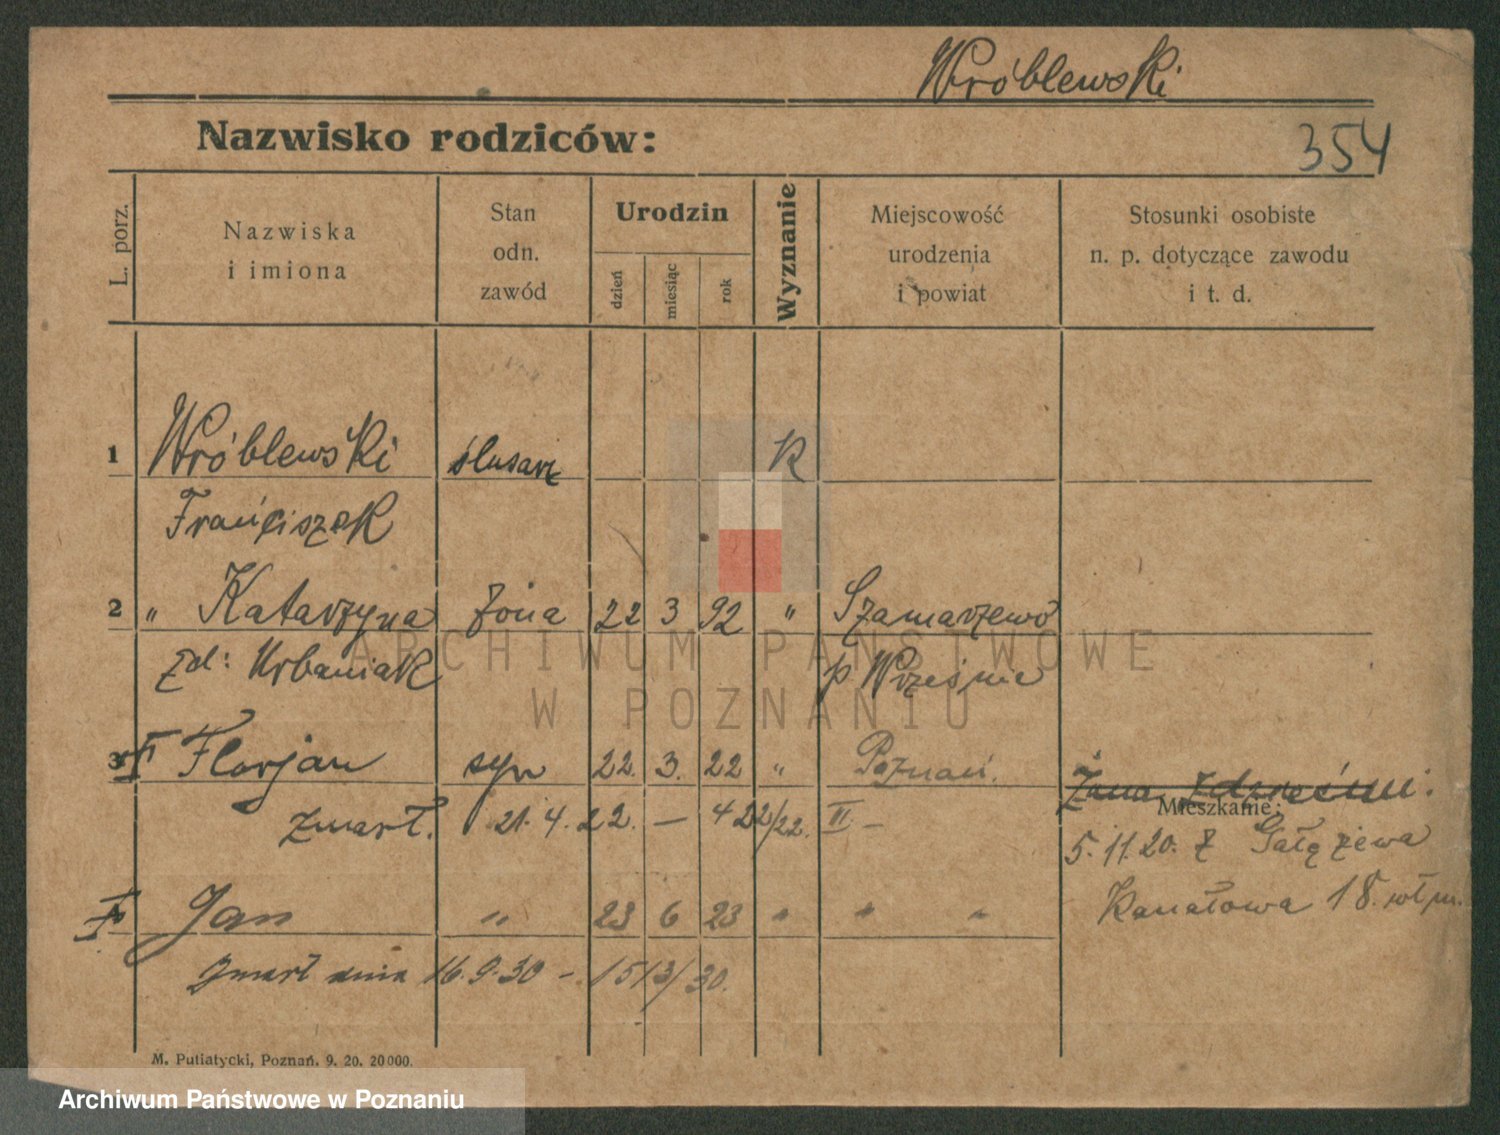 Wróblewski
Nazwisko rodziców:
354
L. porz.
Nazwiska
i imiona
Stan
odn.
zawód
Urodzin
dzień
miesiąc
rok
Wyznanie
Miejscowość
urodzenia
i powiat
Stosunki osobiste
n. p. dotyczące zawodu
i t. d.
1 Wróblewski ślusarz K
Franciszek
2 " Katarzyna żona 22 3 92 " Szamarzewo
zd: Urbaniak p Września
3 Florjan syn 22. 3. 22 " Poznań.
Mieszkanie:
zmarł. 21. 4. 22. — 422/22. II —
5. 11. 20. z Gałązewa
Jan " 23 6 23 " " "
Kanałowa 18.
zmarł dnia 16. 9. 30 - 1513/30.
M. Putiatycki, Poznań. 9. 20. 20000.
ARCHIWUM PAŃSTWOWE
W POZNANIU
Archiwum Państwowe w Poznaniu